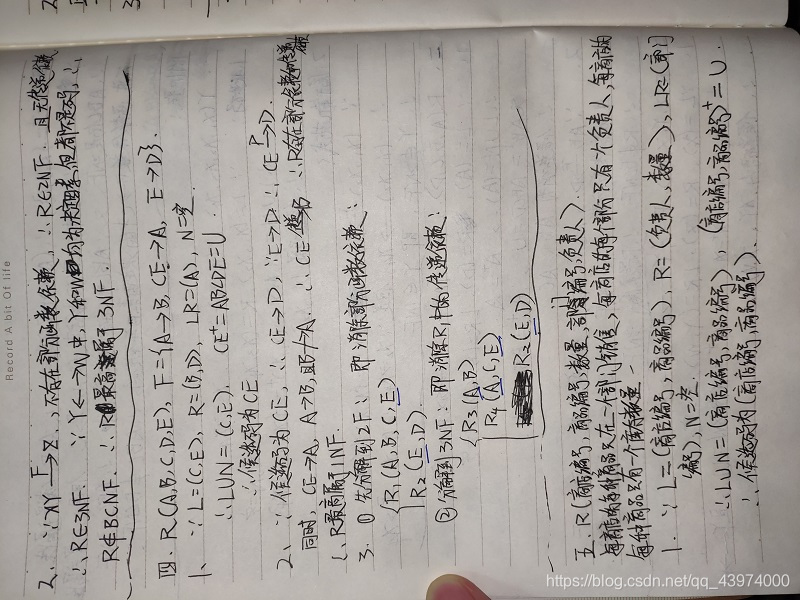 2. ∵ XY F→ Z, 不存在部分函数依赖, ∴ R∈2NF. 且无传递依赖
∴ R∈3NF. ∵ Y←→W中, Y和W均为决定因素, 但都不是码, ∴
R∉BCNF. ∴ R最高属于3NF.
四. R(A,B,C,D,E), F={A→B, CE→A, E→D}.
1. ∵ L=(C,E), R=(B,D), LR=(A), N=空
∴ LUN=(C,E). CE⁺=ABCDE=U
∴ 候选码为CE
2. ∵ 候选码为CE, ∴ CE→D, ∵ E→D ∴ CE P→ D.
同时, CE→A, A→B, A, ∴ CE B ∴ R存在部分依赖和传递依赖
∴ R最高属于1NF.
3. ① 先分解到2F: 即消除部分函数依赖:
{R₁(A,B,C,E)
R₂(E,D)
② 分解到3NF: 即消除R₁中的传递依赖:
{R₃(A,B)
R₄(A,C,E)
R₂(E,D)
五. R(商店编号, 商品编号, 数量, 部门编号, 负责人).
每商店的每种商品只在一个部门销售, 每商店的每个部门只有一个负责人, 每商店的
每种商品只有一个库存数量.
1. ∵ L=(商店编号, 商品编号), R=(负责人, 数量), LR=(部门
编号), N=空.
∴ LUN=(商店编号, 商品编号), (商店编号, 商品编号)⁺=U.
∴ 候选码为(商店编号, 商品编号).
Record A bit Of life
https://blog.csdn.net/qq_43974000